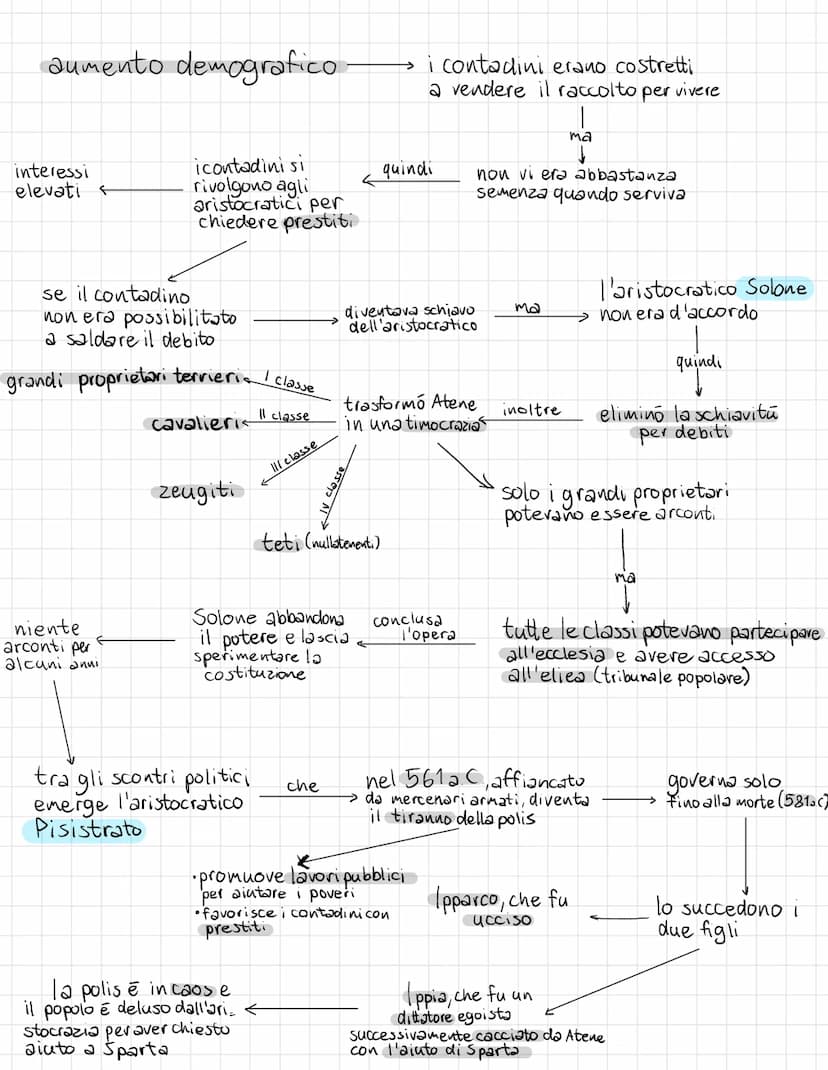 aumento demografico
i contadini erano costretti
a vendere il raccolto per vivere
ma
non vi era abbastanza
semenza quando serviva
quindi
i contadini si
rivolgono agli
aristocratici per
chiedere prestiti
interessi
elevati
se il contadino
non era possibilitato
a saldare il debito
diventava schiavo
dell'aristocratico
ma
l'aristocratico Solone
non era d'accordo
quindi
eliminò la schiavitù
per debiti
inoltre
trasformò Atene
in una timocrazia
I classe
grandi proprietari terrieri
II classe
cavalieri
III classe
zeugiti
IV classe
teti (nullatenenti)
solo i grandi proprietari
potevano essere arconti
ma
tutte le classi potevano partecipare
all'ecclesia e avere accesso
all'eliea (tribunale popolare)
conclusa
l'opera
Solone abbandona
il potere e lascia
sperimentare la
costituzione
niente
arconti per
alcuni anni
tra gli scontri politici
emerge l'aristocratico
Pisistrato
che
nel 561 a C, affiancato
da mercenari armati, diventa
il tiranno della polis
governa solo
fino alla morte (581ac)
•promuove lavori pubblici
per aiutare i poveri
•favorisce i contadini con
prestiti
lo succedono i
due figli
Ipparco, che fu
ucciso
Ippia, che fu un
dittatore egoista
successivamente cacciato da Atene
con l'aiuto di Sparta
la polis è in caos e
il popolo è deluso dall'ari-
stocrazia per aver chiesto
aiuto a Sparta